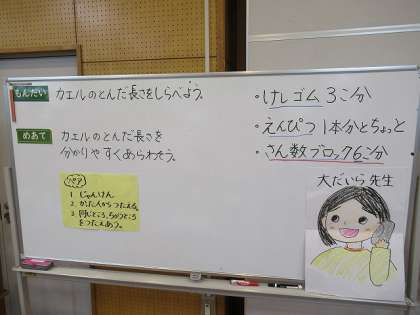 もんだい カエルのとんだ長さをしらべよう。
めあて カエルのとんだ長さを
分かりやすくあらわそう。
ペア
1. じゃんけん
2. かった人からつたえる。
3. 同じところ、ちがうところ
をつたえあう。
・けしゴム 3こ分
・えんぴつ 1本分とちょっと
・さん数ブロック6こ分
大だいら 先生